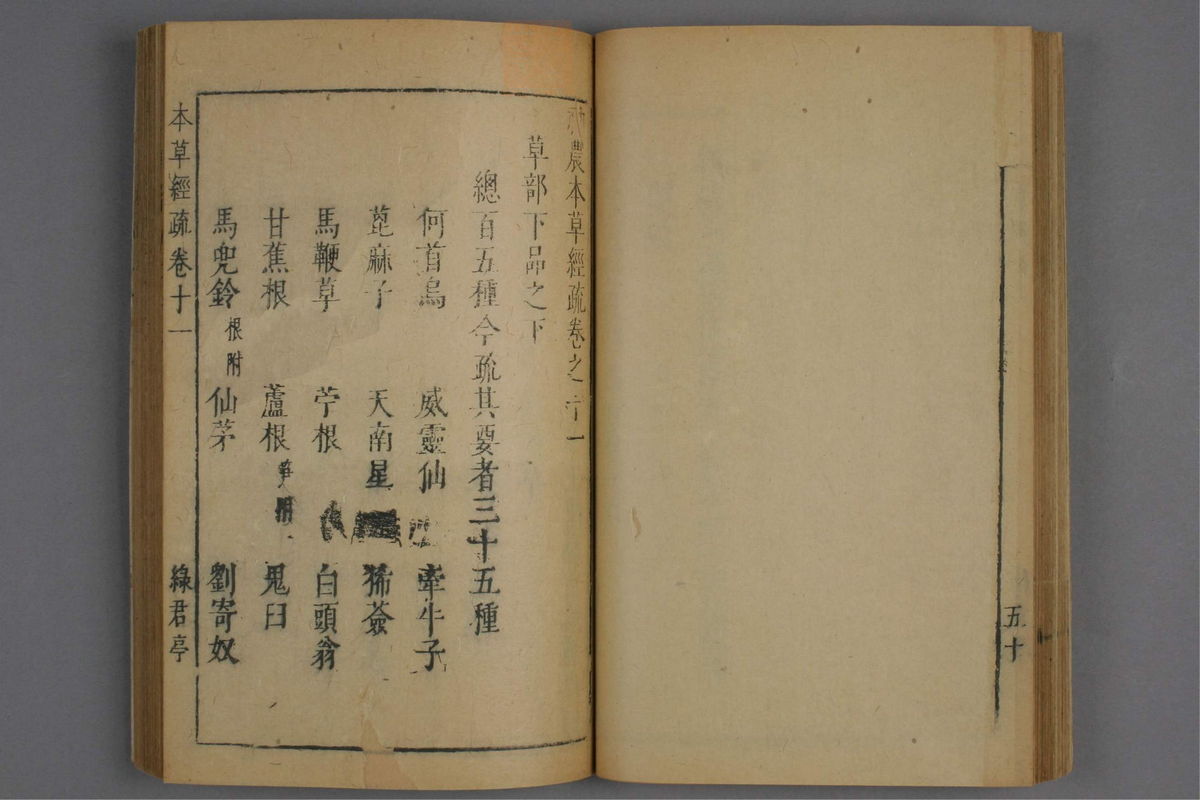 五十
神農本草經疏卷之十一
草部下品之下
總百五種今疏其要者三十五種
何首烏 威靈仙 牽牛子
萞麻子 天南星 豨薟
馬鞭草 苧根 白頭翁
甘蕉根 蘆根笋附 鬼臼
馬兜鈴根附 仙茅 劉寄奴
本草經疏卷十一 綠君亭